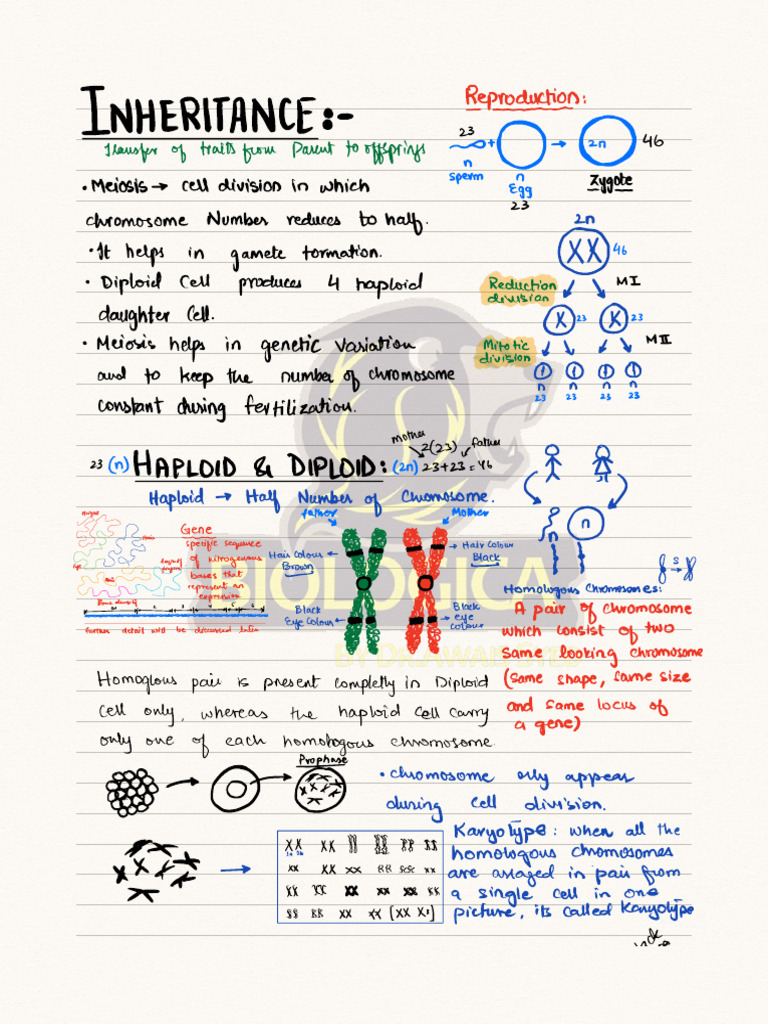 INHERITANCE:-
Transfer of traits from Parent to offsprings
• Meiosis → cell division in which
chromosome Number reduces to half.
• It helps in gamete formation.
• Diploid Cell produces 4 haploid
daughter Cell.
• Meiosis helps in genetic variation
and to keep the number of chromosome
constant during fertilization.
Reproduction:
23
+ → 2n 46
n
sperm
n
Egg
23
Zygote
2n
XX 46
Reduction
division
MI
X 23 X 23
Mitotic
division
MII
n n n n
23 23 23 23
mother 2(23) father
23 (n) HAPLOID & DIPLOID: (2n) 23+23=46
Haploid → Half Number of Chromosome.
father Mother
Gene
specific sequence
of nitrogenous
bases that
represent an
expression
further detail will be discussed later
Hair Colour
Brown
Hair Colour
Black
Black
Eye Colour
Black
eye
colour
n
S
BIOLOGICA
Homologous Chromosomes:
A pair of chromosome
which consist of two
same looking chromosome
(same shape, same size
and same locus of
a gene)
Homoglous pair is present completly in Diploid
cell only, whereas the haploid cell carry
only one of each homologous chromosome.
Prophase
• chromosome only appear
during cell division.
Karyotype: when all the
homologous chromosomes
are arraged in pair from
a single cell in one
picture, its called Karyotype